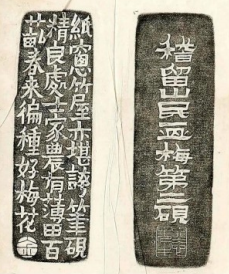 稽留山民畫梅第二硯
紙窻竹屋亦堪誇筆硯
精良處士家農有薄田百
畝春來徧種好梅花